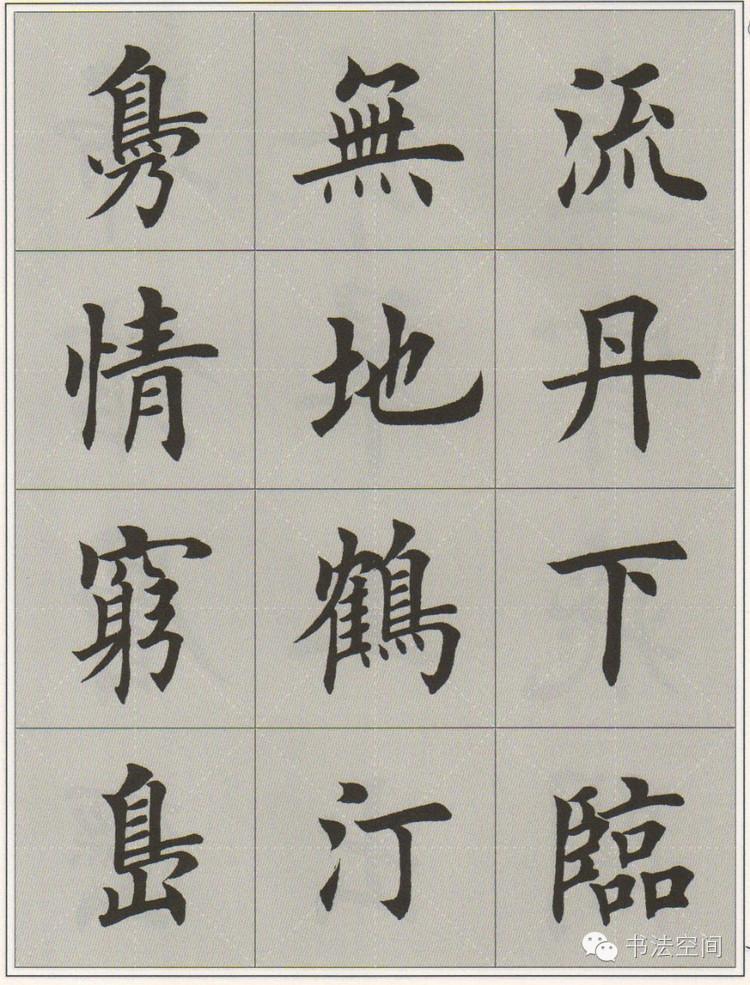 流丹下臨
無地鶴汀
鳧情窮島
书法空间